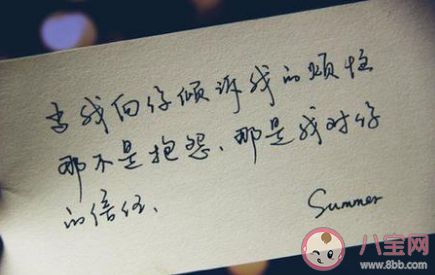 当我向你倾诉我的烦恼
那不是抱怨、那是我对你
的信任、
Summer
八宝网
www.8bb.com